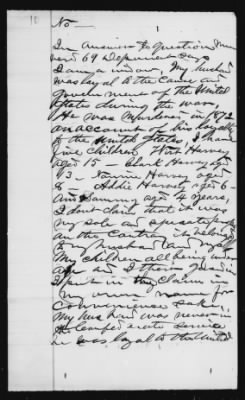 10
No —
In answer to question num
bered 69 Deponent says
I am a widow, My husband
was loyal to the cause and
government of the United
States during the war,
He was murdered in 1872
on account of his loyalty
to the United States. I have
five children, Wm Harvey
aged 15 Clark Harvey aged
13 – Harvey aged
8 – Addie Harvey aged 6
and Sammy aged 4 years,
I don't claim that it was
my sole and separate property
on the Contrary it belonged
to my husband and myself
My children all being under
age and I their guardian
I put in the Claim in
my own name for
Convenience sake,
My husband was never in
the Confederate service
he was loyal to the United